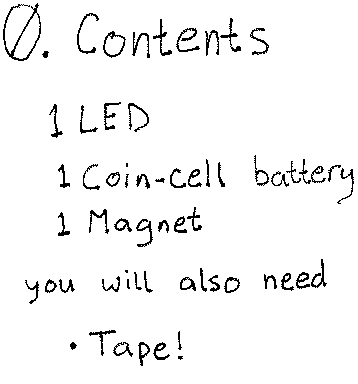 0. Contents
1 LED
1 Coin-cell battery
1 Magnet
you will also need
• Tape!